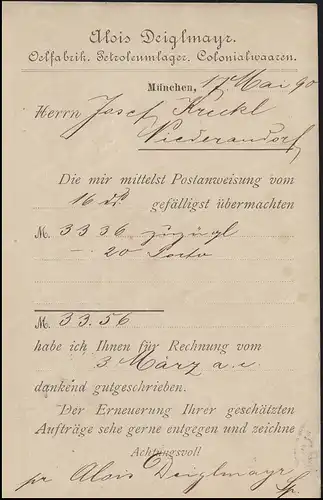 Alois Deiglmayr.
Oelfabrik. Petroleumlager. Colonialwaaren.
München, 17 Mai 90
Herrn Josef Krickl
Niederandorf
Die mir mittelst Postanweisung vom
16 ds. gefälligst übermachten
M. 33 36 zuzügl
– 20 Porto
M. 33.56
habe ich Ihnen für Rechnung vom
3 März a. c.
dankend gutgeschrieben.
Der Erneuerung Ihrer geschätzten
Aufträge sehe gerne entgegen und zeichne
Achtungsvoll
pr Alois Deiglmayr